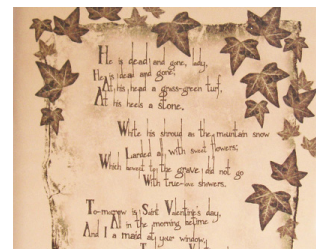 He is dead and gone, lady,
He is dead and gone;
At his head a grass-green turf,
At his heels a stone.
White his shroud as the mountain snow
Larded all with sweet flowers;
Which bewept to the grave did not go
With true-love showers.
To-morrow is Saint Valentine's day,
All in the morning betime
And I a maid at your window,
To